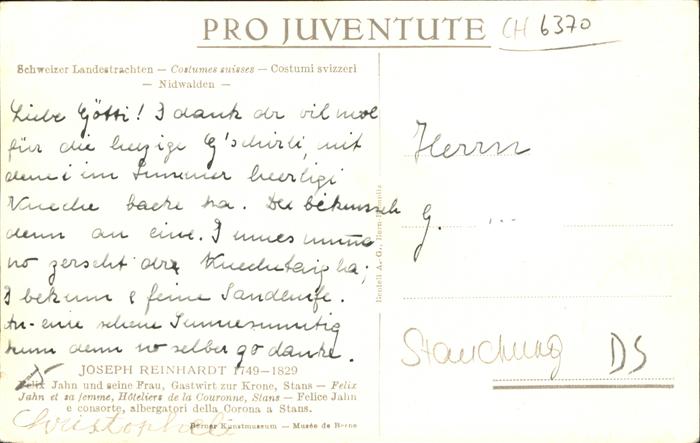 PRO JUVENTUTE
CH 6370
Schweizer Landestrachten — Costumes suisses — Costumi svizzeri
— Nidwalden —
Liebe Götti! I dank dr vil mol
für die herzige G'schirli, mit
dene i im Summer heerligi
Kueche bache ha. Du bekunsch
denn an eine. I mues
no zerscht dr Kuechetaig ha;
I bekum e feine
An eme scheene Sunnesunntig
kum denn no selber go danke.
Herrn
G. ...
Stauchung DS
Benteli A.-G., Bern-Bümpliz
JOSEPH REINHARDT 1749—1829
Felix Jahn und seine Frau, Gastwirt zur Krone, Stans — Felix
Jahn et sa femme, Hôteliers de la Couronne, Stans — Felice Jahn
e consorte, albergatori della Corona a Stans.
Berner Kunstmuseum — Musée de Berne